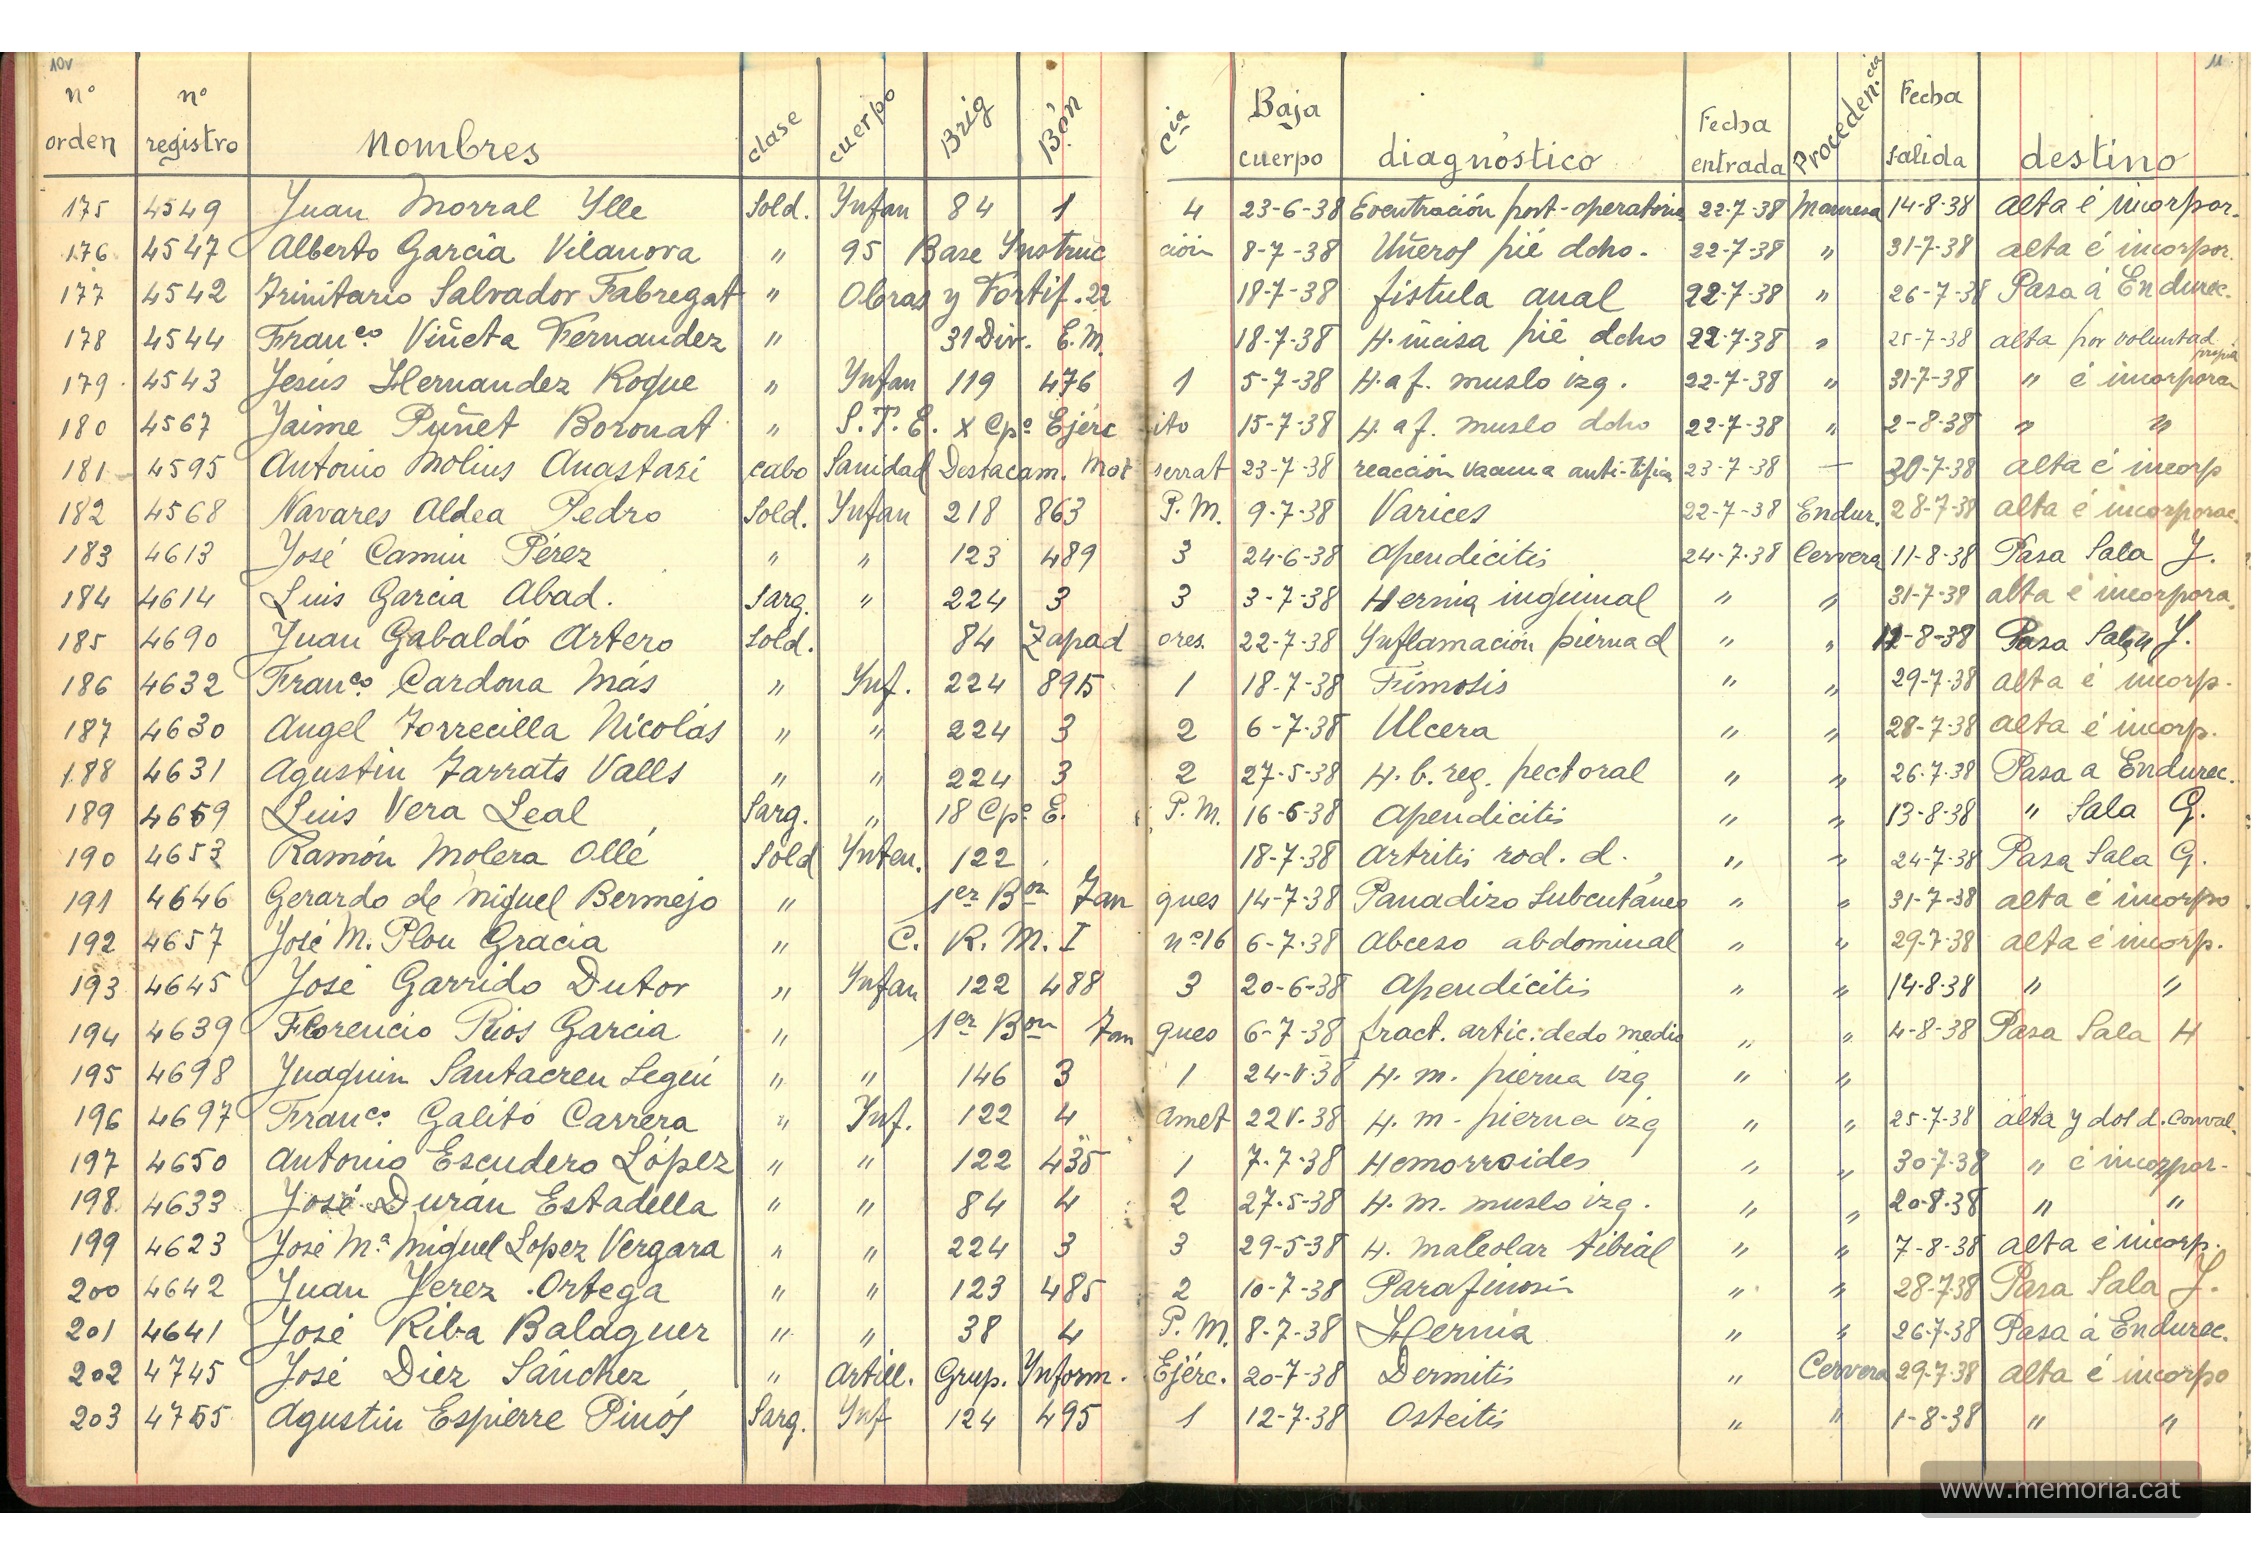 10v 11
nº orden nº registro Nombres clase cuerpo Brig Bón cia Baja cuerpo diagnóstico Fecha entrada Proceden.cia Fecha salida destino
175 4549 Juan Morral Ylle Sold. Ynfan 84 1 4 23-6-38 Eventración post-operatoria 22-7-38 Manresa 14-8-38 alta é incorpor.
176 4547 Alberto García Vilanova " 95 Base Ynstruc ción 8-7-38 Uñeros pié dcho. 22-7-38 " 31-7-38 alta é incorpor.
177 4542 Trinitario Salvador Fabregat " Obras y Fortif. 22 18-7-38 fistula anal 22-7-38 " 26-7-38 Pasa á Endurec.
178 4544 Franco Viñeta Fernandez " 31 Div. E.M. 18-7-38 H. incisa pié dcho 22-7-38 " 25-7-38 alta por voluntad propia
179 4543 Jesús Hernandez Roque " Ynfan 119 476 1 5-7-38 H. a f. muslo izq. 22-7-38 " 31-7-38 " é incorpora
180 4567 Jaime Puñet Boronat " S.T.E. X Cpº Ejérc ito 15-7-38 H. a f. muslo dcho 22-7-38 " 2-8-38 " "
181 4595 Antonio Molins Anastasi cabo Sanidad Destacam. Mot serrat 23-7-38 reacción vacuna anti-tífica 23-7-38 — 30-7-38 alta é incorp
182 4568 Navares Aldea Pedro Sold. Ynfan 218 863 P.M. 9-7-38 Varices 22-7-38 Endur. 28-7-38 alta é incorporac.
183 4613 José Camin Pérez " " 123 489 3 24-6-38 apendicitis 24-7-38 Cervera 11-8-38 Pasa Sala J.
184 4614 Luis Garcia Abad. Sarg. " 224 3 3 3-7-38 Hernia inguinal " " 31-7-38 alta é incorpora.
185 4690 Juan Gabaldó Artero Sold. 84 Zapad ores. 22-7-38 Ynflamación pierna d " " 12-8-38 Pasa Sala J.
186 4632 Franco. Cardona Más " Ynf. 224 895 1 18-7-38 Fimosis " " 29-7-38 alta é incorp.
187 4630 Angel Torrecilla Nicolás " " 224 3 2 6-7-38 Ulcera " " 28-7-38 alta é incorp.
188 4631 Agustin Tarrats Valls " " 224 3 2 27-5-38 H. b. reg. pectoral " " 26-7-38 Pasa a Endurec.
189 4659 Luis Vera Leal Sarg. " 18 Cpº E. P.M. 16-6-38 Apendicitis " " 13-8-38 " Sala G.
190 4653 Ramón Molera Ollé Sold Ynten. 122 18-7-38 Artritis rod. d. " " 24-7-38 Pasa Sala G.
191 4646 Gerardo de Miguel Bermejo " 1er Bon Tan ques 14-7-38 Panadizo Subcutáneo " " 31-7-38 alta é incorpo
192 4657 José M. Plou Gracia " C. R. M. I nº 16 6-7-38 Abceso abdominal " " 29-7-38 alta é incorp.
193 4645 José Garrido Dutor " Ynfan 122 488 3 20-6-38 Apendicitis " " 14-8-38 " "
194 4639 Florencio Rios Garcia " 1er Bon Tan ques 6-7-38 fract. artic. dedo medio " " 4-8-38 Pasa Sala H
195 4698 Juaquin Santacreu Seguí " " 146 3 1 24-V-38 H. m. pierna izq " "
196 4697 Franco. Galitó Carrera " Ynf. 122 4 amet 22 V-38 H. m. pierna izq " " 25-7-38 alta y dos d. Conval.
197 4650 Antonio Escudero López " " 122 435 1 7-7-38 Hemorroides " " 30-7-38 " é incorpor.
198 4633 José Durán Estadella " " 84 4 2 27-5-38 H. m. muslo izq. " " 20-8-38 " "
199 4623 José Mª Miguel Lopez Vergara " " 224 3 3 29-5-38 H. maleolar tibial " " 7-8-38 alta é incorp.
200 4642 Juan Jerez Ortega " " 123 485 2 10-7-38 Parafimosis " " 28-7-38 Pasa Sala J.
201 4641 José Riba Balaguer " " 38 4 P.M. 8-7-38 Hernia " " 26-7-38 Pasa á Endurec.
202 4745 José Diez Sánchez " Artill. Grup. Ynform. Ejérc. 20-7-38 Dermitis " Cervera 29-7-38 alta é incorpo
203 4755 Agustin Espierre Pinós Sarg. Ynf 124 495 1 12-7-38 Osteitis " " 1-8-38 " "
www.memoria.cat